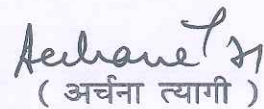 ( अर्चना त्यागी )